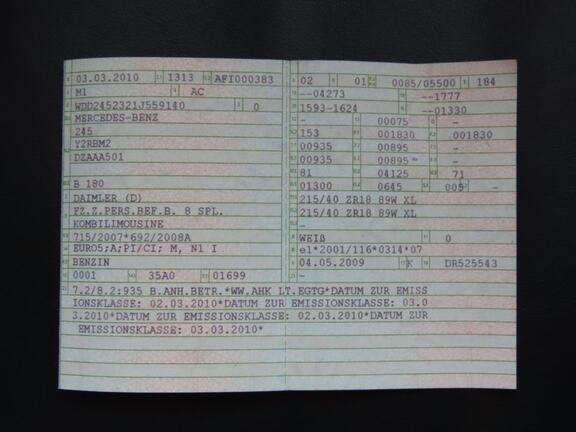 03.03.2010 1313 AFI000383
M1 AC
WDD2452321J559140 0
MERCEDES-BENZ
245
Y2RBM2
DZAAA501
B 180
DAIMLER (D)
FZ.Z.PERS.BEF.B. 8 SPL.
KOMBILIMOUSINE
715/2007*692/2008A
EURO5;A;PI/CI; M, N1 I
BENZIN
0001 35A0 01699
02 01 0085/05500 184
--04273 --1777
1593-1624 --01330
- 00075 -
153 001830 001830
00935 00895 -
00935 00895 -
81 04125 71
01300 0645 005 -
215/40 ZR18 89W XL
215/40 ZR18 89W XL
-
WEIß 0
e1*2001/116*0314*07
04.05.2009 K DR525543
-
7.2/8.2:935 B.ANH.BETR.*WW.AHK LT.EGTG*DATUM ZUR EMISS
IONSKLASSE: 02.03.2010*DATUM ZUR EMISSIONSKLASSE: 03.0
3.2010*DATUM ZUR EMISSIONSKLASSE: 02.03.2010*DATUM ZUR
EMISSIONSKLASSE: 03.03.2010*